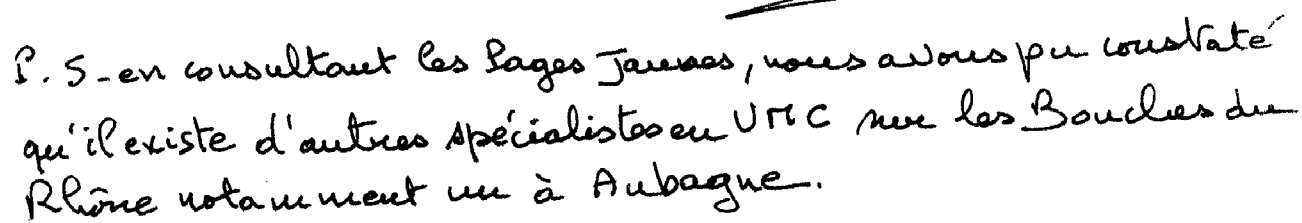 P.S- en consultant les Pages Jaunes, nous avons pu constaté
qu'il existe d'autres spécialistes en VMC sur les Bouches du
Rhône notamment un à Aubagne.